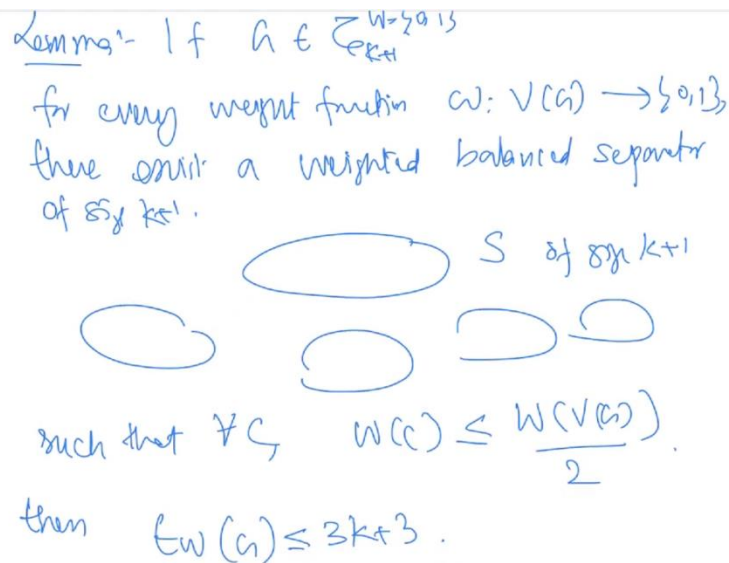 Lemma:- If G ∈ ζ_{k+1}^{W={0,1}}
for every weight function ω: V(G) → {0,1},
there exist a weighted balanced separator
of size k+1.
S of size k+1
such that ∀ C, W(C) ≤ W(V(G))/2.
then tw(G) ≤ 3k+3.